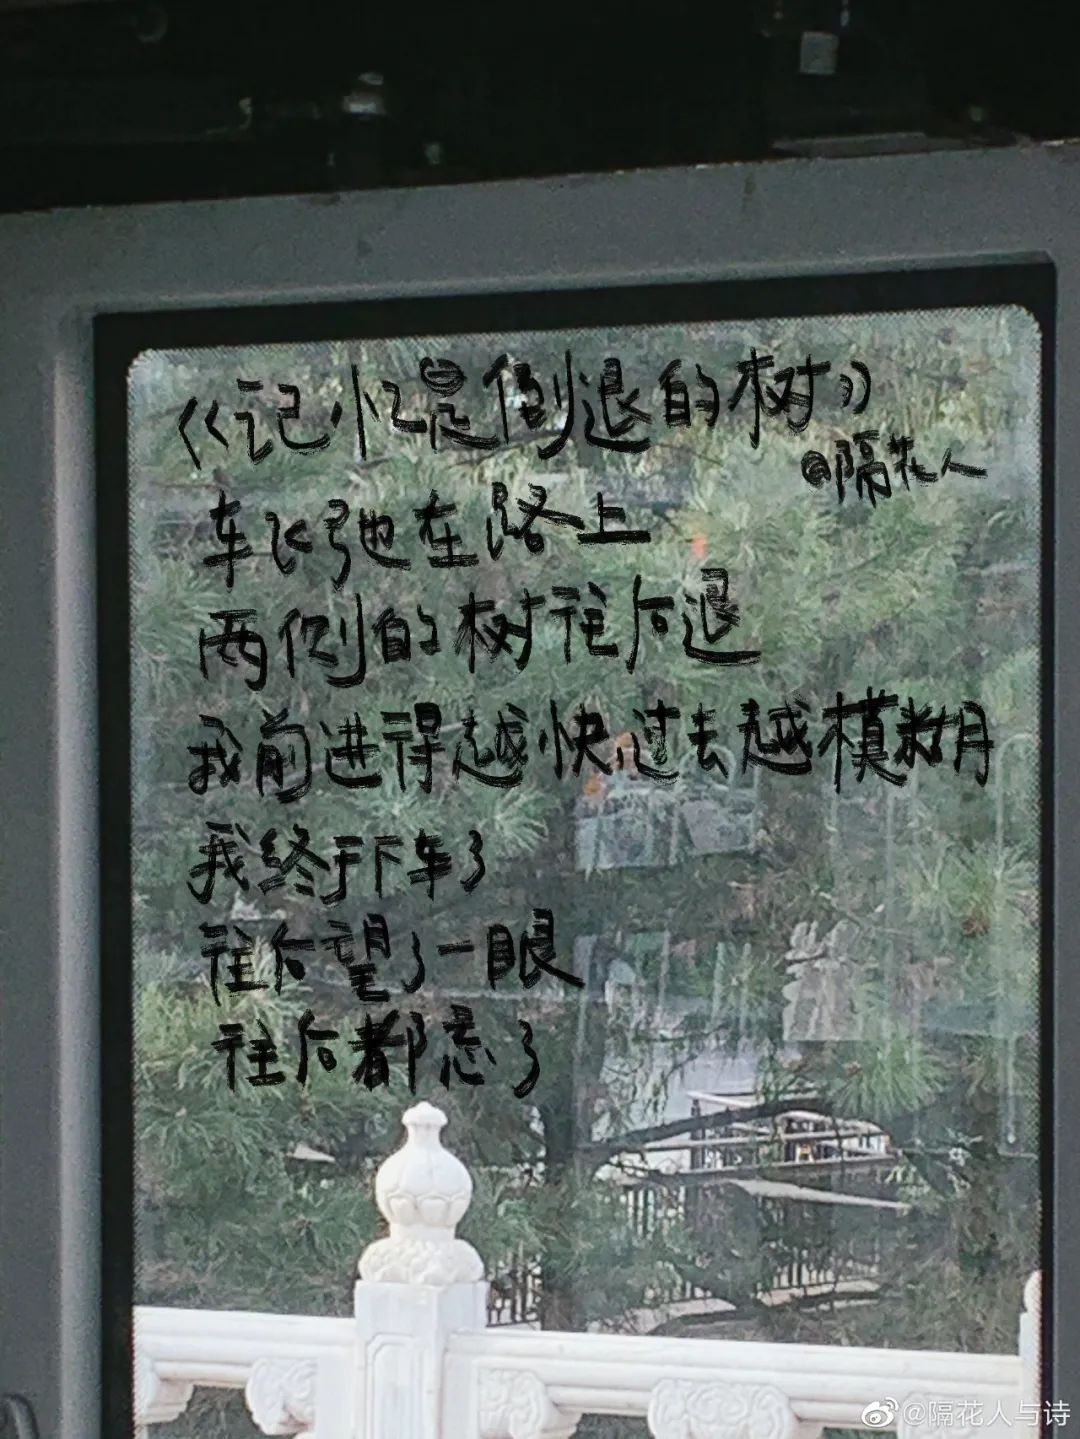 《记忆是倒退的树》
@隔花人
车飞驰在路上
两侧的树往后退
我前进得越快过去越模糊
我终于下车了
往后望了一眼
往后都忘了
@隔花人与诗